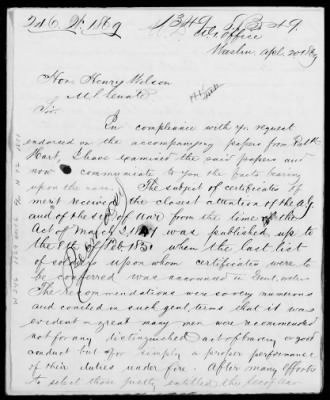 246. 2d. 1869
1349
A.G. Office
Washn. Apl. 20th 69
Hon. Henry Wilson
U.S. Senate
Sir.
In compliance with yr. request
endorsed on the accompanying papers from
Hart, I have examined the said papers and
now communicate to you the facts bearing
upon the case. The subject of certificates of
merit received the closest attention of the A.G.
and of the sec of War from the time the
Act of March 3, was published up to
the 8th when the last list
of upon whom certificates were to
be conferred was announced in Genl. orders
The recommendations were so very numerous
and couched in such genl. terms that it was
evident a great many men were recommended
not for any distinguished act of bravery or good
conduct but for simply a proper performance
of their duties under fire. After many efforts
to select those justly entitled the Sec of War